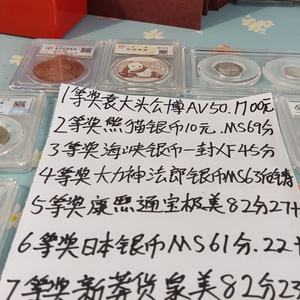 1等奖袁大头公博AV50.1700元
2等奖熊猫银币10元.MS69分
3等奖海峡银币一封XF45分
4等奖大力神法郎银币MS63
5等奖康熙通宝极美82分27+
6等奖日本银币MS61分.22+
7等奖新莽货泉美82分23